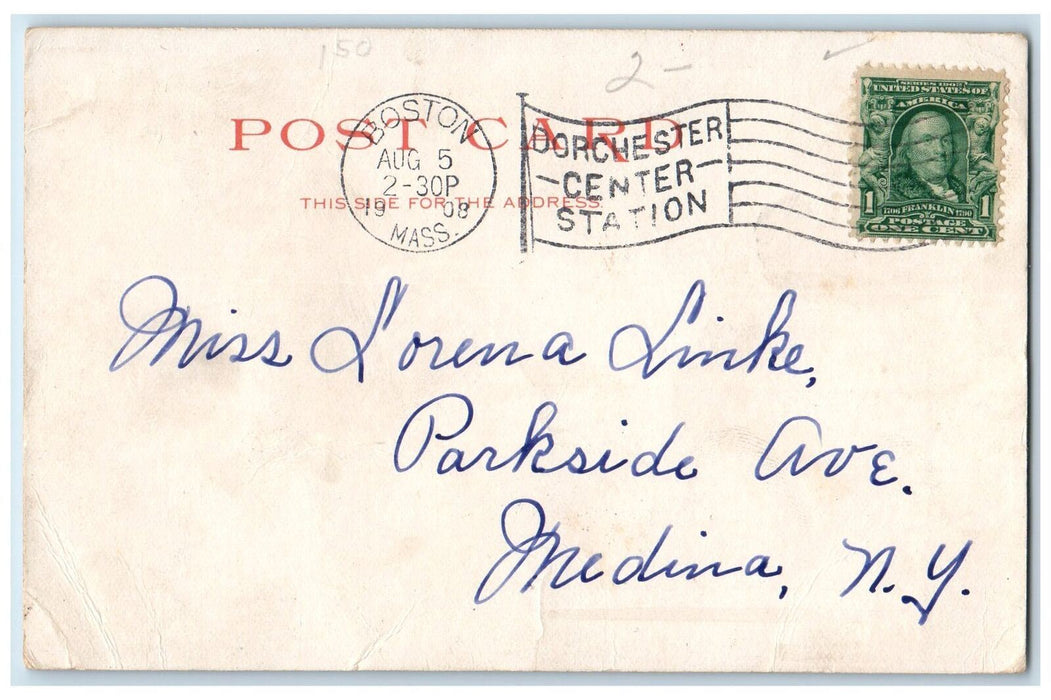 150
2-
POST CARD
THIS SIDE FOR THE ADDRESS.
BOSTON
AUG 5
2-30P
19 08
MASS.
DORCHESTER
CENTER
STATION
SERIES 1902
UNITED STATES OF
AMERICA
1 1706 FRANKLIN 1790 1
POSTAGE
ONE CENT
Miss Lorena Linke,
Parkside Ave.
Medina, N.Y.